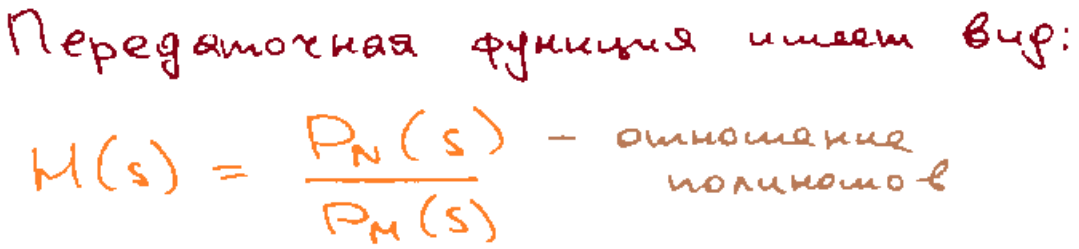 Передаточная функция имеет вид:
H(s) = P_N(s) / P_M(s) – отношение
полиномов